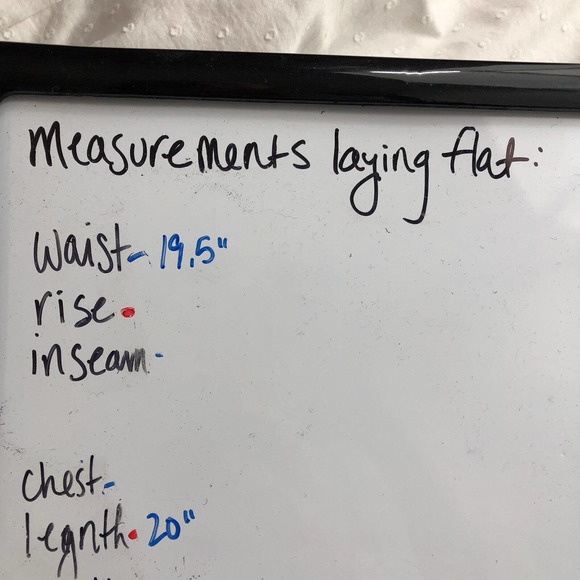 Measurements laying flat:
waist- 19.5"
rise.
inseam-
chest-
legnth. 20"